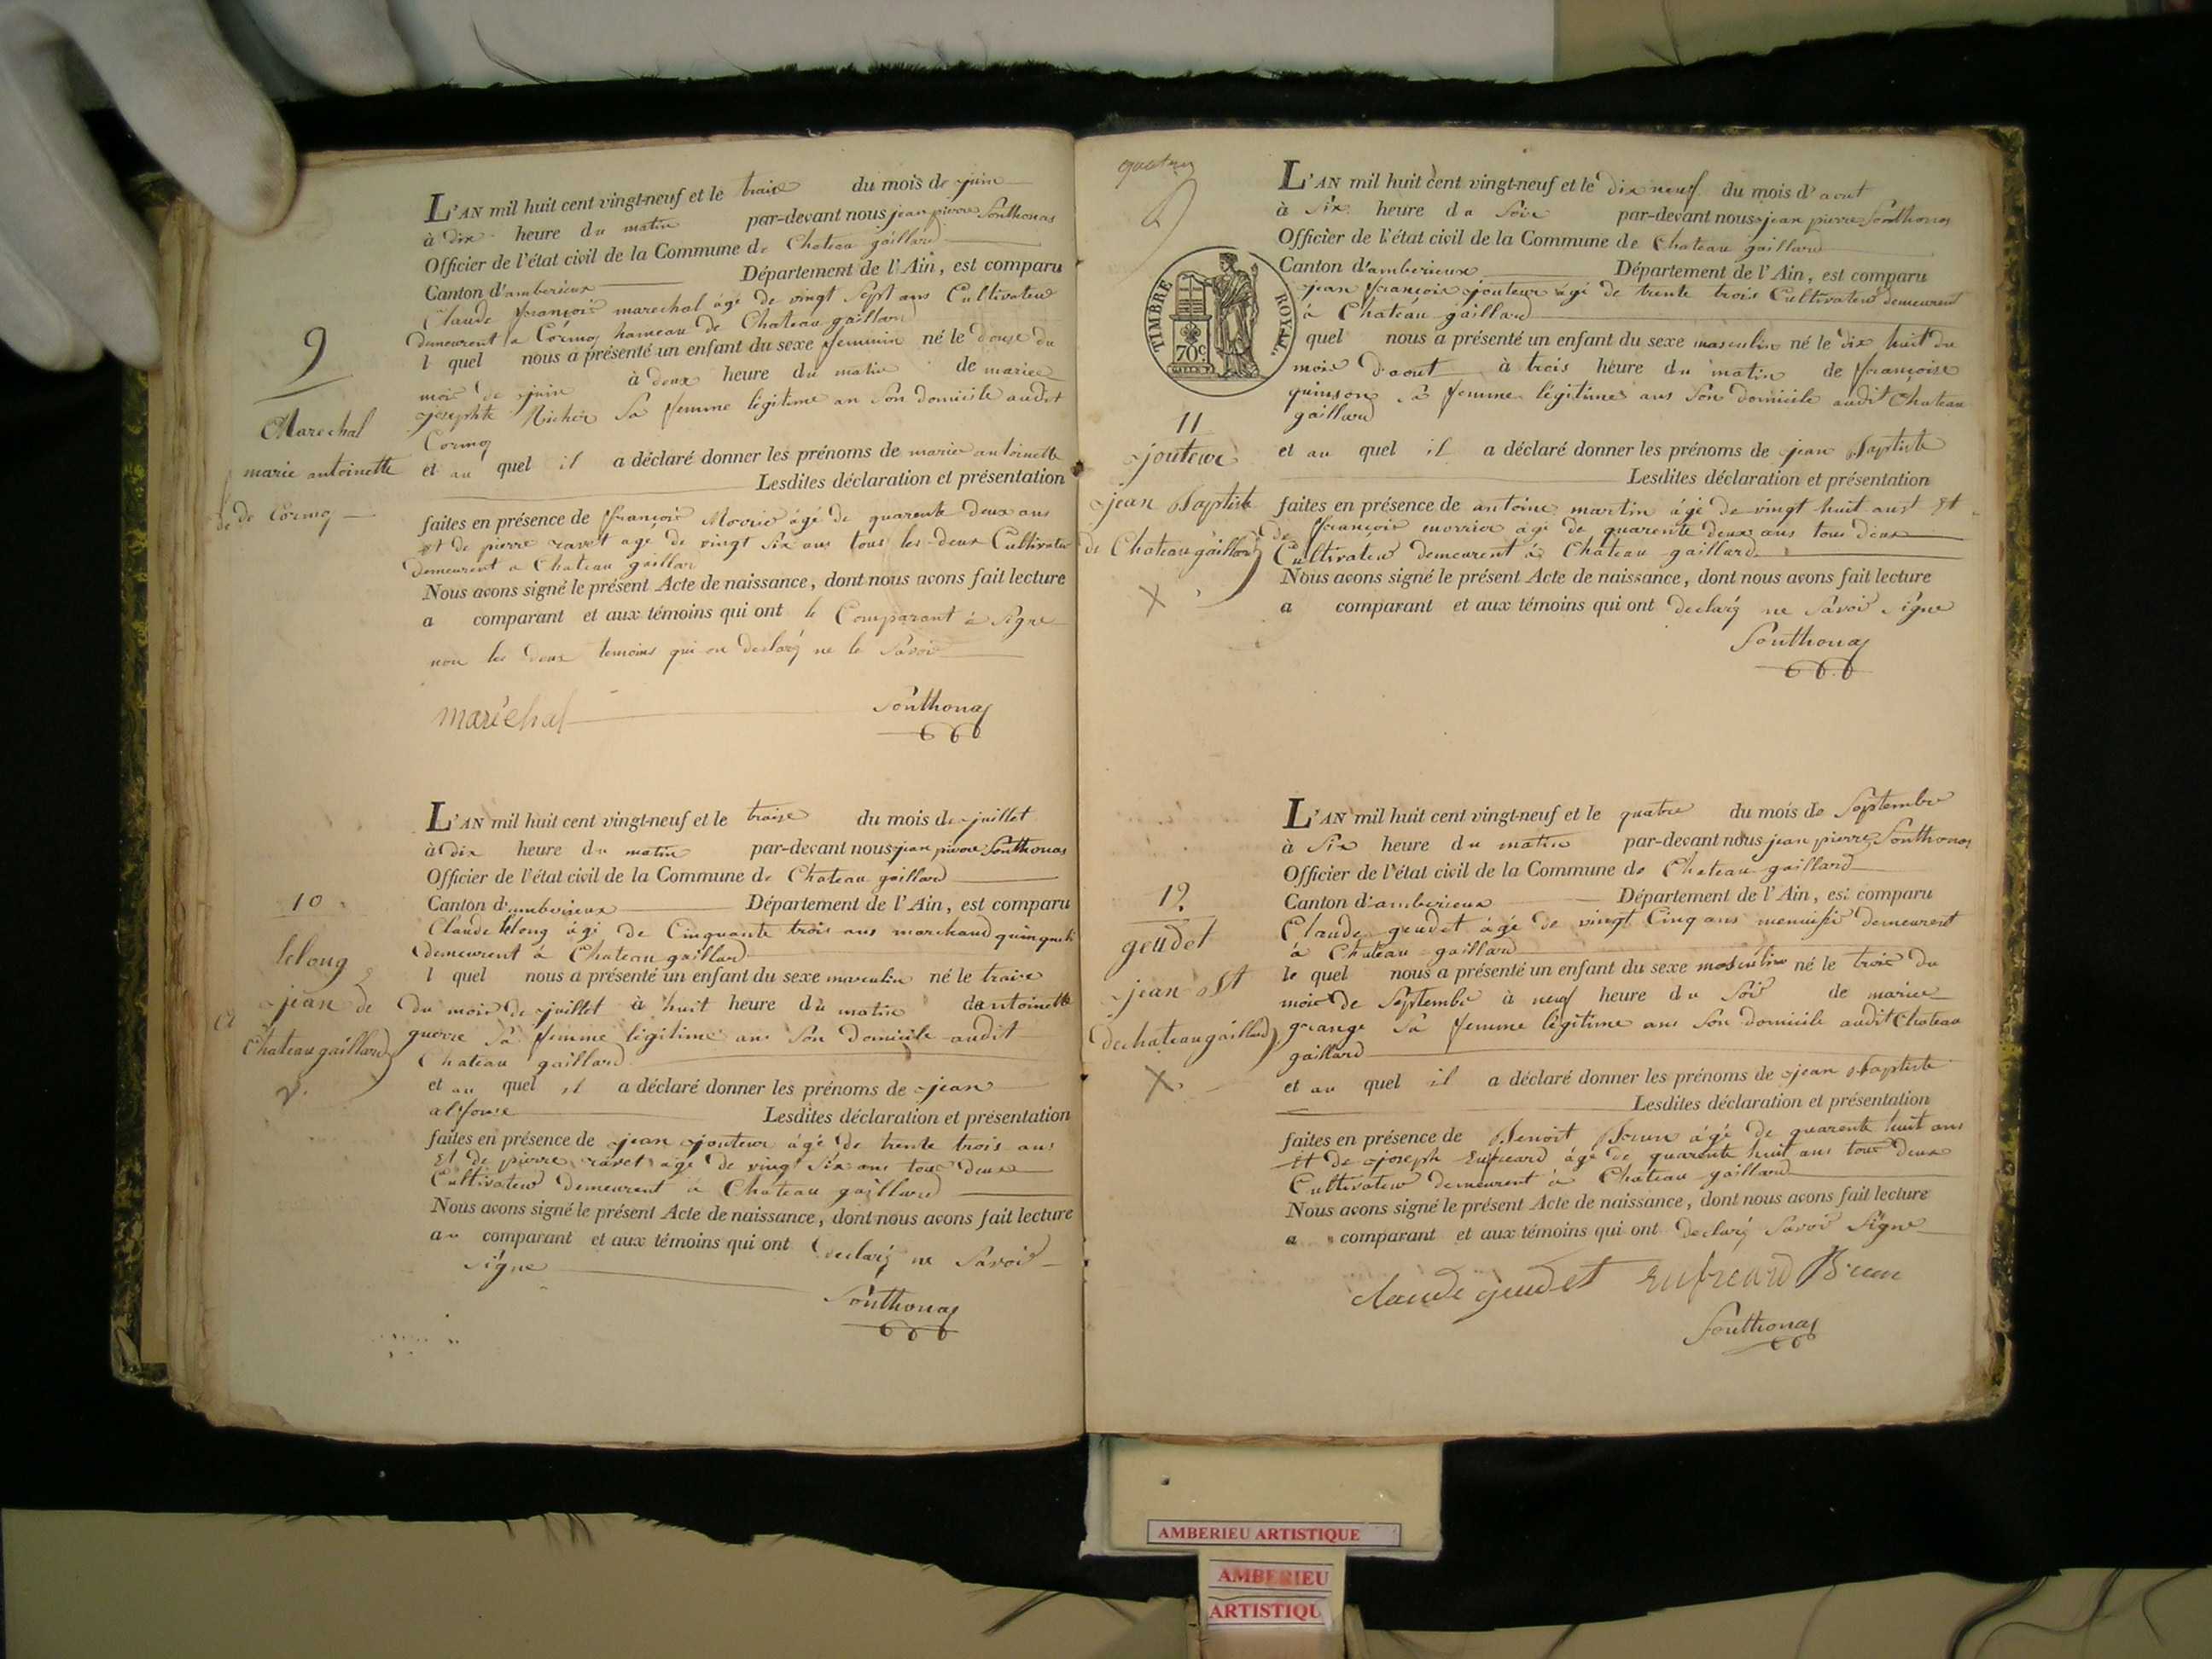 9
Marechal
marie antoinette
de Cormoz
L'AN mil huit cent vingt-neuf et le traise du mois de juin
à dix heure du matin par-devant nous jean pierre Sonthonas
Officier de l'état civil de la Commune de Chateau gaillard
Canton d'amberieux Département de l'Ain, est comparu
Claude françois marechal âgé de vingt Sept ans Cultivateur
demeurent a Cormoz hameau de Chateau gaillard
l quel nous a présenté un enfant du sexe feminin né le douse du
mois de juin à deux heure du matin de marie
josephte Richer Sa femme légitime an Son domicile audit
Cormoz
et au quel il a déclaré donner les prénoms de marie antoinette
Lesdites déclaration et présentation
faites en présence de françois âgé de quarente deux ans
et de pierre ravet age de vingt Six ans tous les deux Cultivateur
demeurent a Chateau gaillar
Nous avons signé le présent Acte de naissance, dont nous avons fait lecture
a comparant et aux témoins qui ont le Comparant à Signe
non les deux temoins qui on declaréz ne le Savoir
maréchal Sonthonas
10
lelong
jean de
Chateau gaillard
L'AN mil huit cent vingt-neuf et le traise du mois de juillet
à dix heure du matin par-devant nous jean pierre Sonthonas
Officier de l'état civil de la Commune de Chateau gaillard
Canton d'amberieux Département de l'Ain, est comparu
Claude lelong âgé de Cinquante trois ans marchaud
demeurent à Chateau gaillard
l quel nous a présenté un enfant du sexe masculin né le traise
du mois de juillet à huit heure du matin de antoinette
guerre Sa femme légitime ans Son domicile audit
Chateau gaillard
et au quel il a déclaré donner les prénoms de jean
alfonse Lesdites déclaration et présentation
faites en présence de jean jouteur âgé de trente trois ans
Et de pierre ravet âgé de vingt Six ans tous deux
Cultivateur demeurent à Chateau gaillard
Nous avons signé le présent Acte de naissance, dont nous avons fait lecture
au comparant et aux témoins qui ont declaréz ne Savoir
Signe
Sonthonas
TIMBRE ROYAL.
70c
11
jouteur
jean Baptiste
de Chateau gaillard
X
L'AN mil huit cent vingt-neuf et le dix neuf du mois d'aout
à Six heure du Soir par-devant nous jean pierre Sonthonas
Officier de l'état civil de la Commune de Chateau gaillard
Canton d'amberieux Département de l'Ain, est comparu
jean françois jouteur âgé de trente trois Cultivateur demeurent
à Chateau gaillard
quel nous a présenté un enfant du sexe masculin né le dix huit du
mois d'aout à trois heure du matin de françoise
quinson Sa femme légitime ans Son domicile audit Chateau
gaillard
et au quel il a déclaré donner les prénoms de jean Baptiste
Lesdites déclaration et présentation
faites en présence de antoine martin âgé de vingt huit ans Et
de françois âgé de quarente deux ans tous deux
Cultivateur demeurent à Chateau gaillard
Nous avons signé le présent Acte de naissance, dont nous avons fait lecture
a comparant et aux témoins qui ont declaréz ne Savoir Signe
Sonthonas
12
geudet
jean Bt
de chateau gaillard
X
L'AN mil huit cent vingt-neuf et le quatre du mois de Septembre
à Six heure du matin par-devant nous jean pierre Sonthonas
Officier de l'état civil de la Commune de Chateau gaillard
Canton d'amberieux Département de l'Ain, est comparu
Claude geudet âgé de vingt Cinq ans menuisie demeurent
à Chateau gaillard
le quel nous a présenté un enfant du sexe masculin né le trois du
mois de Septembre à neuf heure du Soir de marie
grange Sa femme légitime ans Son domicile audit Chateau
gaillard
et au quel il a déclaré donner les prénoms de jean Baptiste
Lesdites déclaration et présentation
faites en présence de Benoit Brun âgé de quarente huit ans
Et de joseph âgé de quarente huit ans tous deux
Cultivateur demeurent à Chateau gaillard
Nous avons signé le présent Acte de naissance, dont nous avons fait lecture
a comparant et aux témoins qui ont declaréz Savoir Signe
claude geudet Brun
Sonthonas
AMBERIEU ARTISTIQUE
AMBERIEU
ARTISTIQU